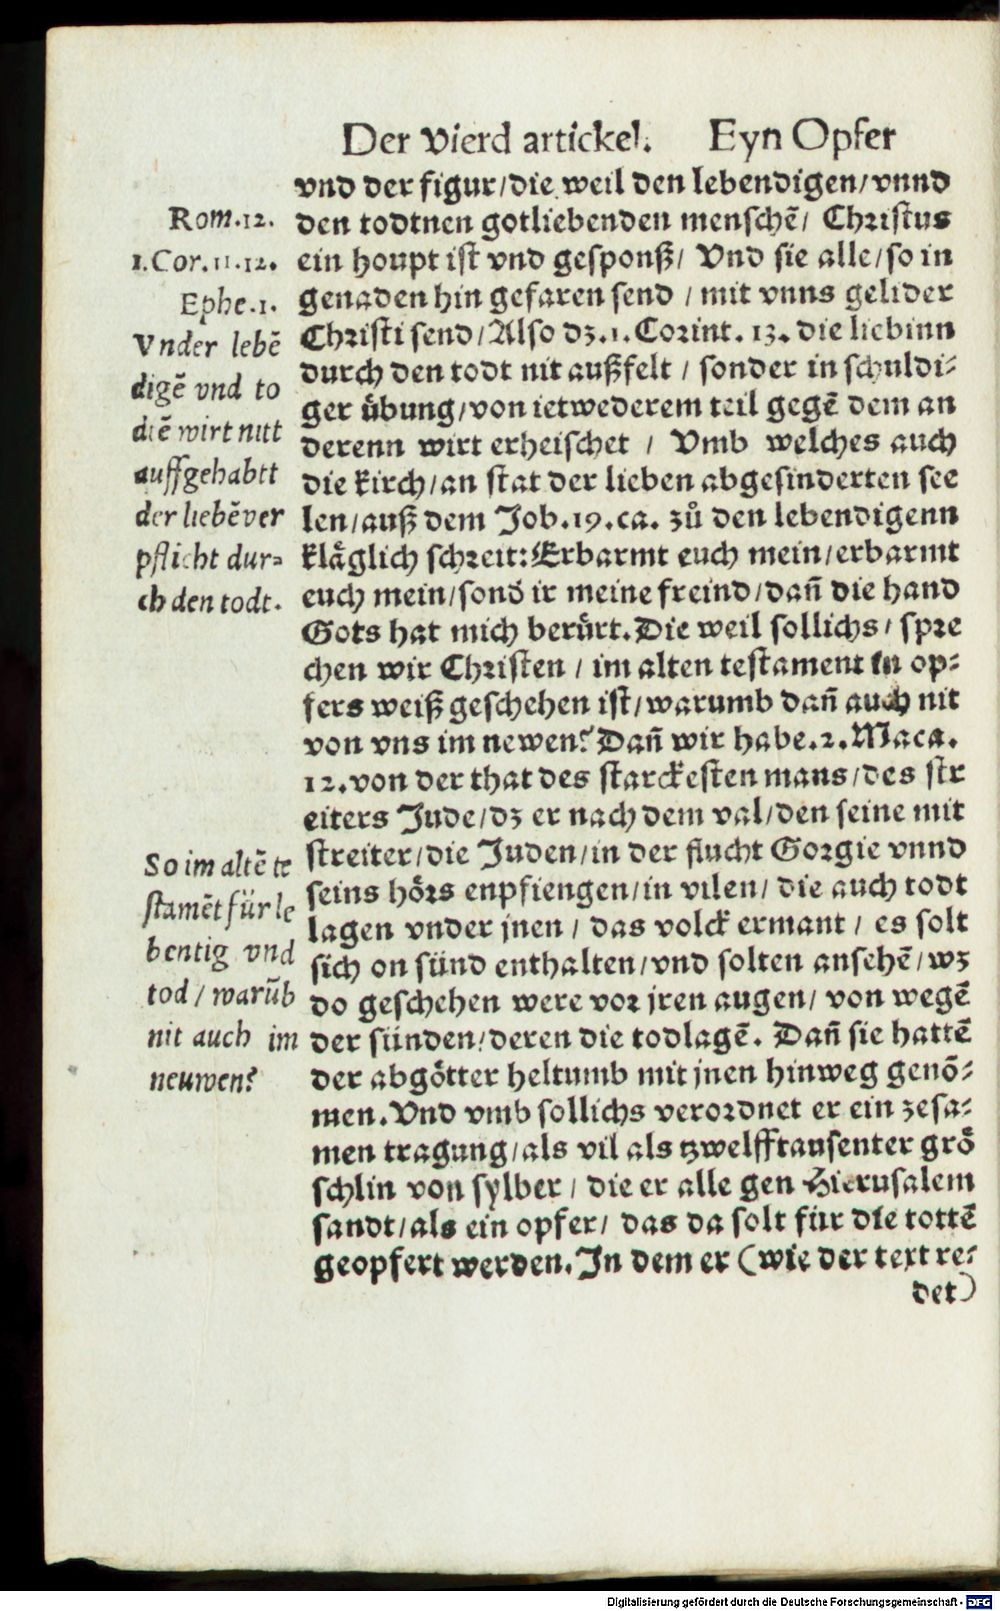 Der Vierd artickel. Eyn Opfer
vnd der figur/die weil den lebendigen/vnnd
den todtnen gotliebenden menschẽ/ Christus
ein houpt ist vnd gesponß/ Vnd sie alle/so in
genaden hin gefaren send / mit vnns gelider
Christi send/Also dz.1.Corint. 13. die liebinn
durch den todt nit außfelt / sonder in schuldi-
ger übung/von ietwederem teil gegẽ dem an
derenn wirt erheischet / Vmb welches auch
die kirch/an stat der lieben abgesinderten see
len/auß dem Job.19.ca. zů den lebendigenn
kläglich schreit:Erbarmt euch mein/erbarmt
euch mein/sonđ ir meine freind/dañ die hand
Gots hat mich berürt.Die weil sollichs/ spre
chen wir Christen / im alten testament in op-
fers weiß geschehen ist/warumb dañ auch nit
von vns im newen? Dañ wir habe.2.Maca.
12.von der that des starckesten mans/des str
eiters Jude/dz er nach dem val/den seine mit
streiter/die Juden/in der flucht Gorgie vnnd
seins hörs enpfiengen/in vilen/ die auch todt
lagen vnder jnen / das volck ermant / es solt
sich on sünd enthalten/vnd solten ansehẽ/wz
do geschehen were vor jren augen/ von wegẽ
der sünden/deren die todlagẽ. Dañ sie hattẽ
der abgötter heltumb mit jnen hinweg genõ-
men.Vnd vmb sollichs verordnet er ein zesa-
men tragung/als vil als tzwelfftausenter grö
schlin von sylber / die er alle gen Hierusalem
sandt/als ein opfer/ das da solt für die tottẽ
geopfert werden.In dem er (wie der text re-
det)
Rom.12.
1.Cor.11.12.
Ephe.1.
Vnder lebẽ
digẽ vnd to
dtẽ wirt nitt
auffgehabtt
der liebẽ ver
pflicht dur-
ch den todt.
So im altẽ te
stamẽt für le
bentig vnd
tod / warũb
nit auch im
neuwen?
Digitalisierung gefördert durch die Deutsche Forschungsgemeinschaft - DFG